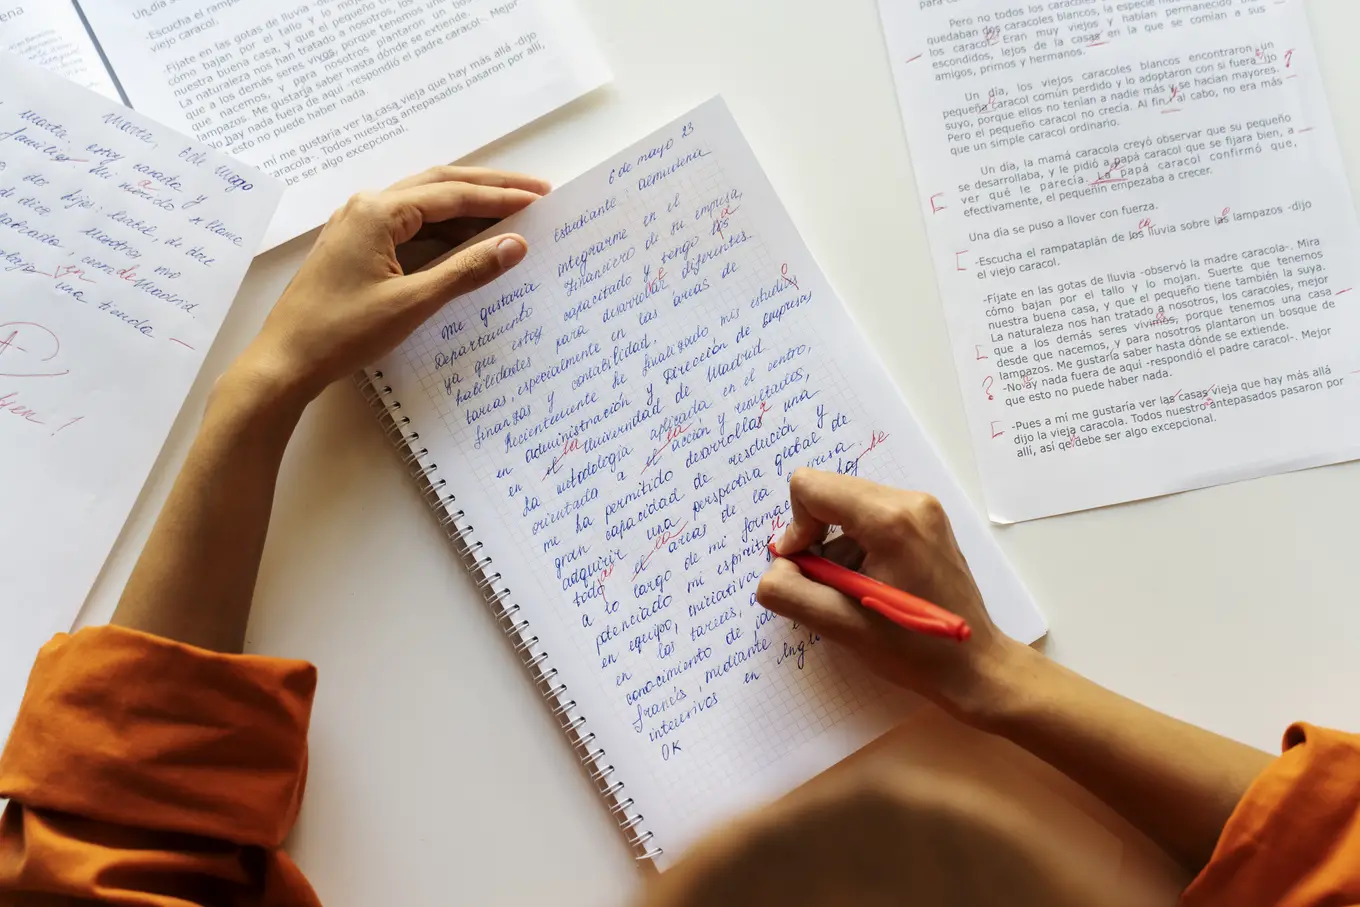 Un día se
-Escucha el rampata
viejo caracol.
-Fíjate en las gotas de lluvia -obser
cómo bajan por el tallo y lo mojan
nuestra buena casa, y que el pequeño tiene
La naturaleza nos han tratado a nosotros, los
que a los demás seres vivos, porque tenemos una
desde que nacemos, y para nosotros plantaron un bosque
lampazos. Me gustaría saber hasta dónde se extiende.
-No hay nada fuera de aquí -respondió el padre caracol-. Mejor
que esto no puede haber nada.
a mí me gustaría ver la casa vieja que hay más allá -dijo
caracola-. Todos nuestros antepasados pasaron por allí,
be ser algo excepcional.
Marta, 6 de mayo
Marta: estoy casada y
familia. Mi marido se llame
a
dos hijos: Isabel, de doce
dice
nosotros, mo
en, cerca de Madrid
una tienda
A-
Bien!
6 de mayo 23
Estudiante: Almudena
Me gustaría integrarme en el
Departamento Financiero de su empresa,
ya que estoy capacitado y tengo las
a
habilidades para desarrollar diferentes
tareas, especialmente en las áreas de
finanzas y contabilidad.
Recientemente he finalizado mis estudios
o
en administración y Dirección de Empresas
en el Universidad de Madrid
la
La metodología aplicada en el centro,
orientado a el acción y resultados,
la
me ha permitido desarrollar una
gran capacidad de resolución y
adquirir una perspectiva global de
todas el áreas de la empresa.
la
a lo largo de mi formac
he
potenciado mi espíritu
en equipo, iniciativa
en los tareas, a
conocimiento de idi
francés, mediante
intensivos en Ingl
OK
para co
Pero no todos los caracoles blancos, la especie
quedaban dos caracoles blancos,
los caracol. Eran muy viejos y habían permanecido
escondidos, lejos de la casas en la que se comían a sus
amigos, primos y hermanos.
Un día, los viejos caracoles blancos encontraron un
pequeña caracol común perdido y lo adoptaron con si fuera ijo
suyo, porque ellos no tenían a nadie más y se hacían mayores.
Pero el pequeño caracol no crecía. Al fin y al cabo, no era más
que un simple caracol ordinario.
?
Un día, la mamá caracola creyó observar que su pequeño
se desarrollaba, y le pidió a papá caracol que se fijara bien, a
ver qué le parecía. La papá caracol confirmó que,
efectivamente, el pequeñin empezaba a crecer.
Una día se puso a llover con fuerza.
-Escucha el rampataplán de los lluvia sobre las lampazos -dijo
la
el viejo caracol.
-Fíjate en las gotas de lluvia -observó la madre caracola-. Mira
cómo bajan por el tallo y lo mojan. Suerte que tenemos
nuestra buena casa, y que el pequeño tiene también la suya.
La naturaleza nos han tratado a nosotros, los caracoles, mejor
que a los demás seres vivimos, porque tenemos una casa
desde que nacemos, y para nosotros plantaron un bosque de
lampazos. Me gustaría saber hasta dónde se extiende.
-No ay nada fuera de aquí -respondió el padre caracol-. Mejor
que esto no puede haber nada.
?
-Pues a mí me gustaría ver las casas vieja que hay más allá
dijo la vieja caracola. Todos nuestro antepasados pasaron por
allí, así qe debe ser algo excepcional.